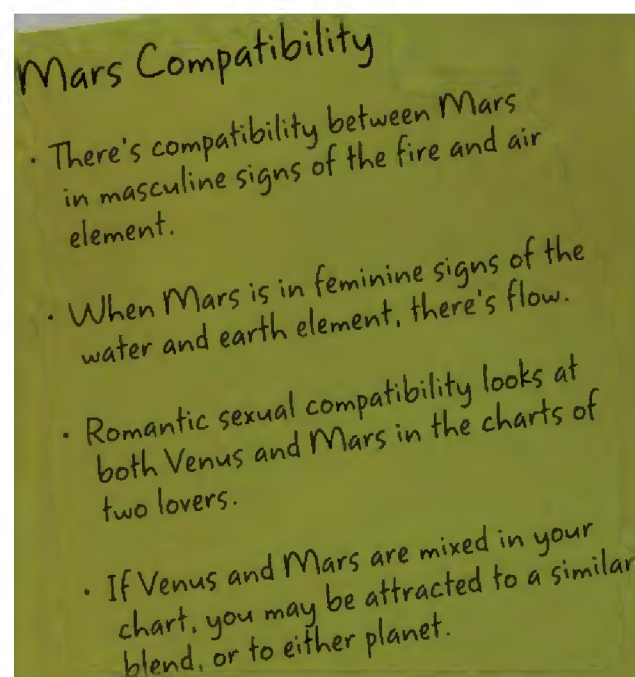 Mars Compatibility
· There's compatibility between Mars
in masculine signs of the fire and air
element.
· When Mars is in feminine signs of the
water and earth element, there's flow.
· Romantic sexual compatibility looks at
both Venus and Mars in the charts of
two lovers.
· If Venus and Mars are mixed in your
chart, you may be attracted to a similar
blend, or to either planet.